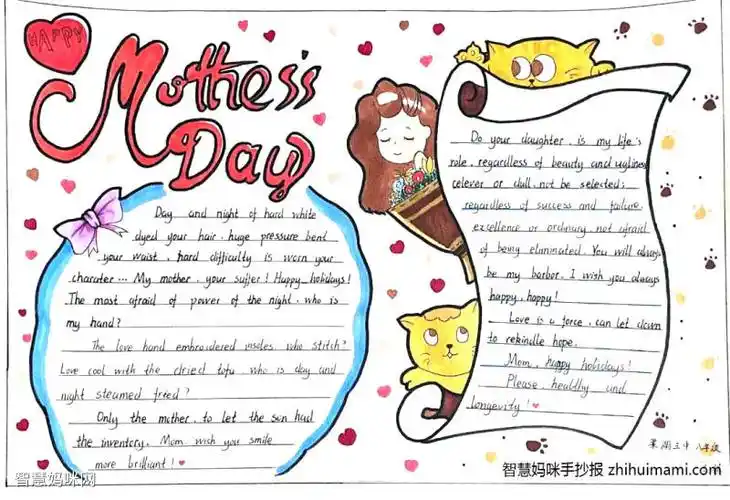 HAPPY
Mothes's
Day
Day and night of hard white
dyed your hair. huge pressure bent
your waist. hard difficulty is worn your
charater... My mother. your suffer! Happy holidays!
The most afraid of power of the night. who is
my hand?
The love hand embroidered insoles. who stitch?
Love cool with the dried tofu who is day and
night steamed fried?
Only the mother. to let the son had
the inventory. Mom. wish you smile
more brilliant!
Do your daughter. is my life's
role. regardless of beauty and ugliness
celever or dull. not be selected;
regardless of success and failure.
excellence or ordinary. not afraid
of being eliminated. You will always
be my barbor. I wish you always
happy, happy!
Love is a force. can let down
to rekindle hope.
Mom. happy holidays!
Please healdhy and
longevity!
三中 八年级
智慧妈咪网
智慧妈咪手抄报 zhihuimami.com